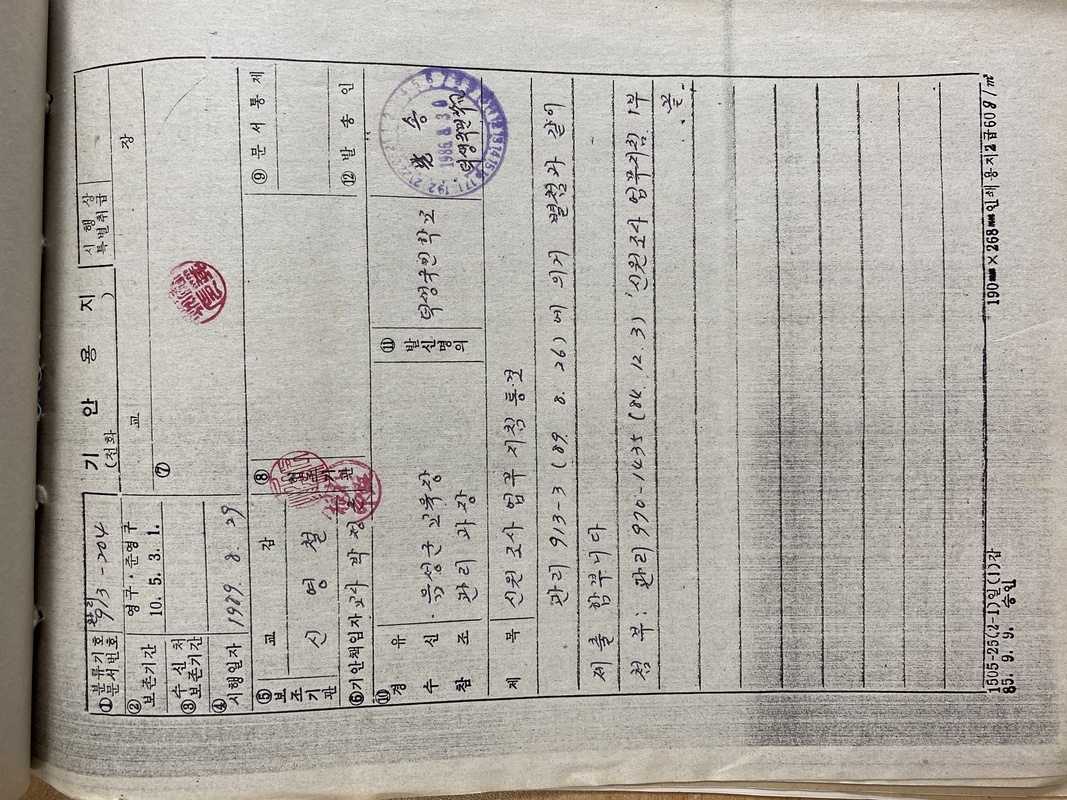 기 안 용 지
(전화 )
시 행 상
특별취급
①분류기호
문서번호
관리
913-204
교 장
②보존기간
영구·준영구
10. 5. 3. 1.
⑦
③수 신 처
보존기간
④시행일자
1989. 8. 29
⑤보조기관
교 감
신 영 철
⑧
⑨문 서 통 제
⑥기안책임자
교사 박 정
⑫발 송 인
⑩경 유
수 신
음성군 교육장
참 조
관리 과장
⑪발신명의
덕성국민학교
발 송
1986 8 30
제 목
신원 조사 업무 지침 통보
관리 913-3 (89. 8. 26)에 의거 별첨과 같이
제출 합니다
첨 부: 관리 970-1435 (84. 12. 3) '신원조사 업무지침 1부
끝.
1505-25(2-1)일(1)갑
85. 9. 9. 승인
190㎜×268㎜인쇄용지2급60g/㎡